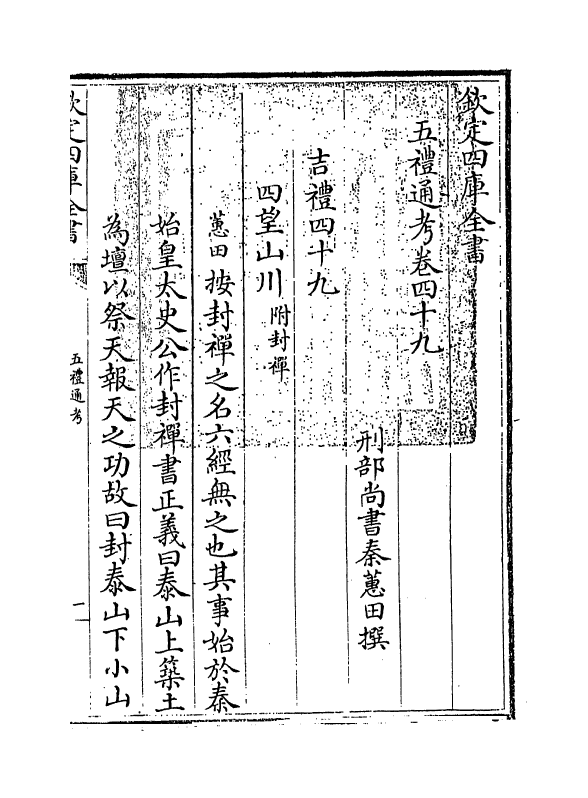 欽定四庫全書
五禮通考卷四十九
刑部尚書秦蕙田撰
吉禮四十九
四望山川附封禪
蕙田按封禪之名六經無之也其事始於秦
始皇太史公作封禪書正義曰泰山上築土
為壇以祭天報天之功故曰封泰山下小山
欽定四庫全書
五禮通考
一